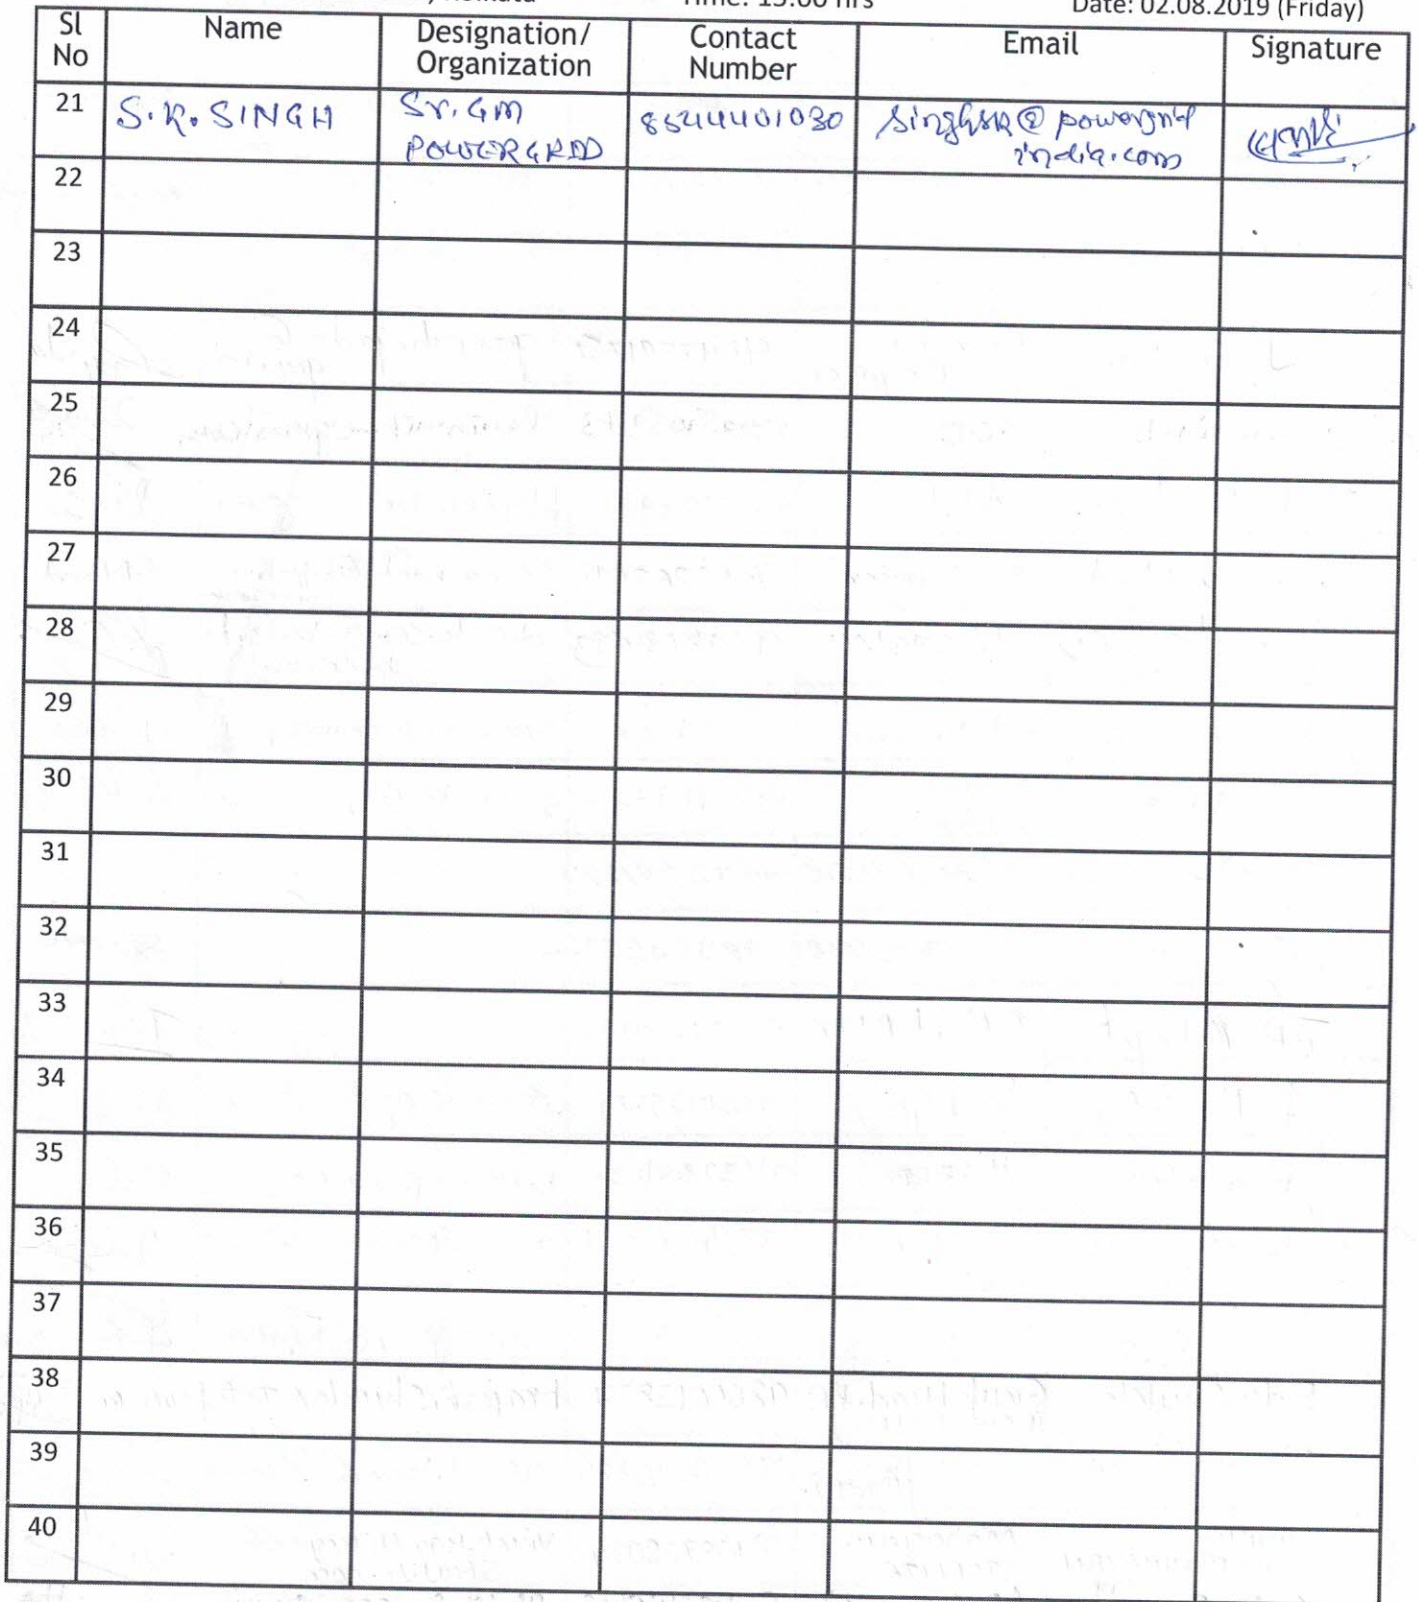 Kolkata Time: 15:00 hrs Date: 02.08.2019 (Friday)
Sl No Name Designation/ Organization Contact Number Email Signature
21 S.K. SINGH Sr. GM 8544401030 singhsk@powergrid
POWERGRID india.com
22
23
24
25
26
27
28
29
30
31
32
33
34
35
36
37
38
39
40